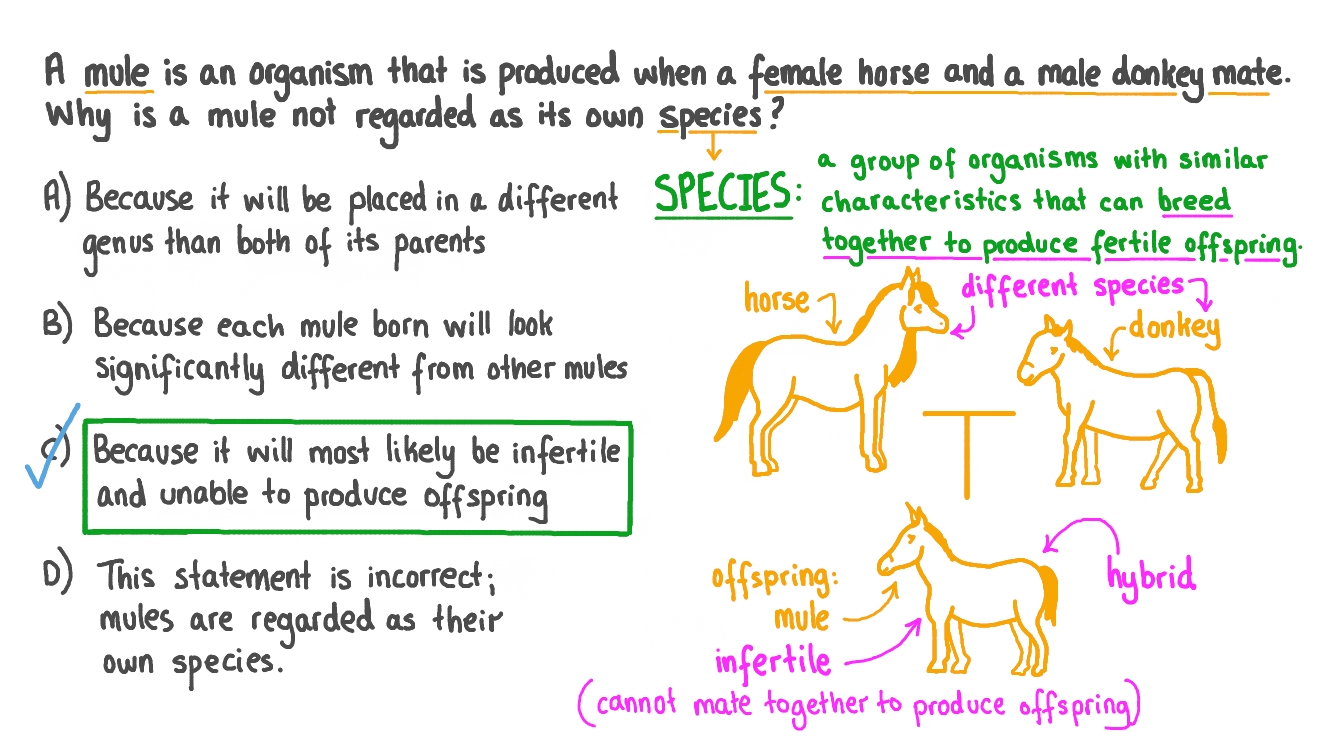 A mule is an organism that is produced when a female horse and a male donkey mate.
Why is a mule not regarded as its own species?
A) Because it will be placed in a different
genus than both of its parents
B) Because each mule born will look
significantly different from other mules
C) Because it will most likely be infertile
and unable to produce offspring
D) This statement is incorrect;
mules are regarded as their
own species.
SPECIES:
a group of organisms with similar
characteristics that can breed
together to produce fertile offspring.
horse
different species
donkey
offspring:
mule
hybrid
infertile
(cannot mate together to produce offspring)